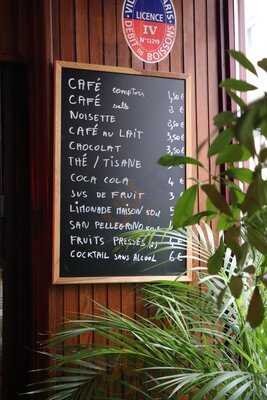 VILLE DE PARIS
LICENCE
IV
DEBIT DE BOISSONS
CAFÉ comptoir 1,50
CAFÉ salle 2
NOISETTE
CAFÉ AU LAIT 3,50
CHOCOLAT 3,50
THÉ / TISANE
COCA COLA 4
JUS DE FRUIT
LIMONADE MAISON 50cl
SAN PELLEGRINO
FRUITS PRESSÉS
COCKTAIL SANS ALCOOL 6€